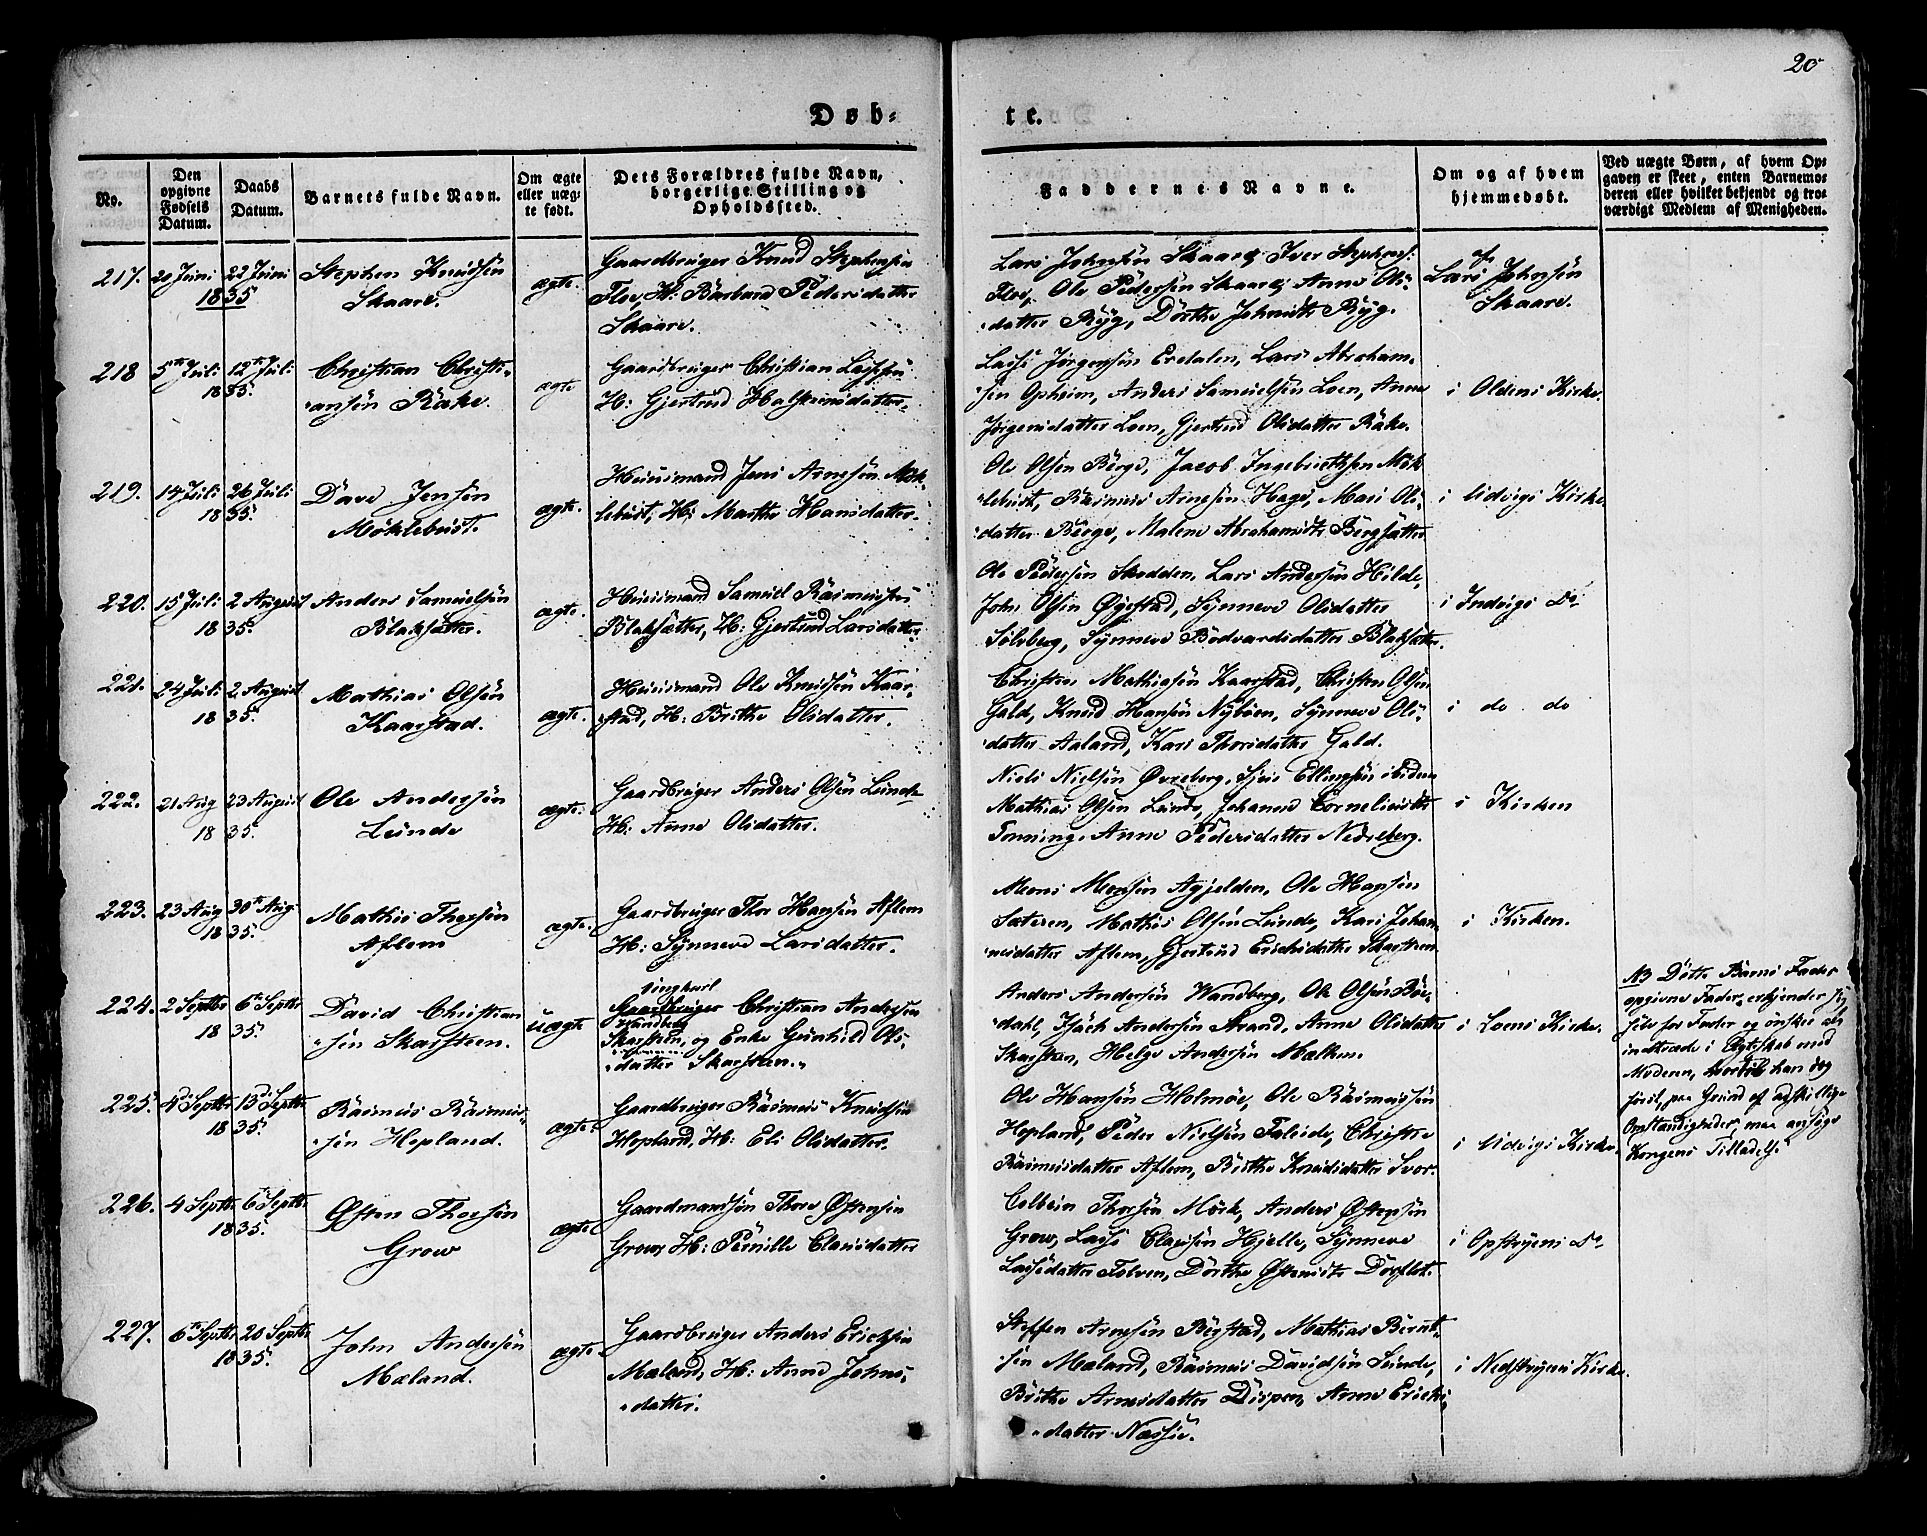 20
Døb-
te.
No.
Den opgivne Fødsels Datum.
Daabs Datum.
Barnets fulde Navn.
Om ægte eller uægte født.
Dets Forældres fulde Navn, borgerlige Stilling og Opholdssted.
Faddernes Navne.
Om og af hvem hjemmedøbt.
Ved uægte Børn, af hvem Opgaven er skeet, enten Barnemoderen eller hvilket bekjendt og troværdigt Medlem af Menigheden.
217. 20 Juni 22 Juni
1835
Stephen Knudsen
Skaare.
ægte.
Gaardbruger Knud Stephensen
Floe, H: Barbara Pedersdatter
Skaare.
Lars Johnsen Skaare, Iver Stephens:
Floe, Ole Pedersen Skaare, Anne Ols-
datter Ryg, Dorthe Johnsdtr Ryg.
af
Lars Johnsen
Skaare.
218 5te Juli 12te Juli
1835.
Christian Christi-
ansen Rake.
ægte
Gaardbruger Christian Lassesen
H: Gjertrud Halsteinsdatter.
Lasse Jørgensen Eredalen, Lars Abraham-
sen Opheim, Anders Samuelsen Loen, Anne
Jørgensdatter Loen, Gjertrud Olsdatter Rake.
i Oldens Kirke.
219. 14 Juli 26 Juli
1835.
Dave Jensen
Møklebust.
ægte.
Huusmand Jens Arnesen Møk-
lebust, H: Marthe Hansdatter.
Ole Olsen Berge, Jacob Ingebrigtsen Møk
lebust, Rasmus Arnesen Hage, Mari Ols-
datter Berge, Malene Abrahamsdtr Bergsætter
i Udvigs Kirke
220. 15 Juli 2 August
1835.
Anders Samuelsen
Blaksætter.
ægte.
Huusmand Samuel Rasmussen
Blaksætter, H: Gjertrud Larsdatter
Ole Pedersen Skedden, Lars Andersen Hilde,
John Olsen Øgestad, Synneve Olsdatter
Solvberg, Synneve Bødvardsdatter Blaksæter.
i Indvigs Do
221. 24 Juli 2 August
1835.
Mathias Olsen
Kaarstad.
ægte.
Huusmand Ole Knudsen Kaar-
stad, H: Brithe Olsdatter.
Christen Mathiasen Kaarstad, Christen Olsen
Gald, Knud Hansen Nybøen, Synneve Ols-
datter Aaland, Kari Thorsdatter Gald.
i do do
222. 21 Aug 23 August
1835.
Ole Andersen
Lunde
ægte.
Gaardbruger Anders Olsen Lunde
H: Anne Olsdatter.
Niels Nielsen Øvreberg, Sjur Ellingsen ibidem
Mathias Olsen Lunde, Johanne Corneliusdtr
Tonning, Anne Pedersdatter Nedreberg.
i Kirken
223. 23 Aug 30te Aug
1835.
Mathis Thoresen
Aflem
ægte.
Gaardbruger Thor Hansen Aflem
H: Synneve Larsdatter.
Mons Monsen Agjelden, Ole Hansen
Sæteren, Mathis Olsen Lunde, Kari Johan-
nesdatter Aflem, Gjertrud Erichsdatter Skarsteen
i Kirken.
224. 2 Septbr 6te Septbr
1835.
David Christian
sen Skarsteen.
uægte
ungkarl
Gaardbruger Christian Andersen
Wandberg
Skarsteen, og Enke Gunhild Ols-
datter Skarsteen.
Anders Andersen Wandberg, Ole Olsen Bø-
dahl, Isach Andersen Strand, Anne Olsdatter
Skarsteen, Helge Andersen Mælhen.
i Loens Kirke.
NB Dette Barns Fader
opgivne Fader, erkjender sig
selv for Fader og ønsker at
indtræde i Ægteskab med
Moderen, hvortil han dog
først, paa Grund af adskillige
Omstændigheder, maa ansøge
Kongens Tilladelse
225. 4de Septbr 13de Septbr
1835.
Rasmus Rasmus-
sen Hopland.
ægte.
Gaardbruger Rasmus Knudsen
Hopland, H: Eli Olsdatter.
Ole Hansen Holmøe, Ole Rasmussen
Hopland, Peder Nielsen Faleide, Christie
Rasmusdatter Aflem, Brithe Knudsdatter Svor.
i Udvigs Kirke.
226. 4 Septbr 6te Septbr
1835.
Østen Thoresen
Grow
ægte
Gaardmandsøn Thore Østensen
Grow, H: Pernille Clausdatter
Colbein Thorsen Mørk, Anders Østensen
Grow, Lasse Clausen Hjelle, Synneve
Lassedatter Folven, Dorthe Østensdtr Dørflot.
i Opstryens Do
227. 6te Septbr 20 Septbr
1835.
John Andersen
Mæland.
ægte.
Gaardbruger Anders Ericksen
Mæland, H: Anne Johns-
datter.
Steffen Arnesen Bøstad, Mathias Bernt-
sen Mæland, Rasmus Davidsen Sunde,
Brithe Arnesdatter Dispen, Anne Ericks-
datter Næsse.
i Nedstryens Kirke.